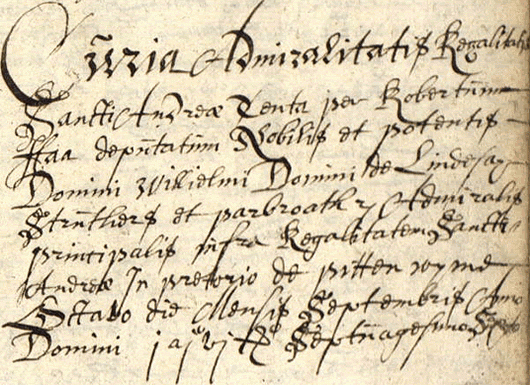 Curia Admiralitatis Regalitatis
Sancti Andreæ Tenta per Robertum
ffaa deputatum Nobilis et potentis
Domini Willielmi Domini de Lindesay
Struthers et parbroath Admiralis
principalis infra Regalitatem Sancti
Andreæ In pretorio de pittenwyme
Octavo die Mensis Septembris Anno
Domini jajvjC Septuagesimo